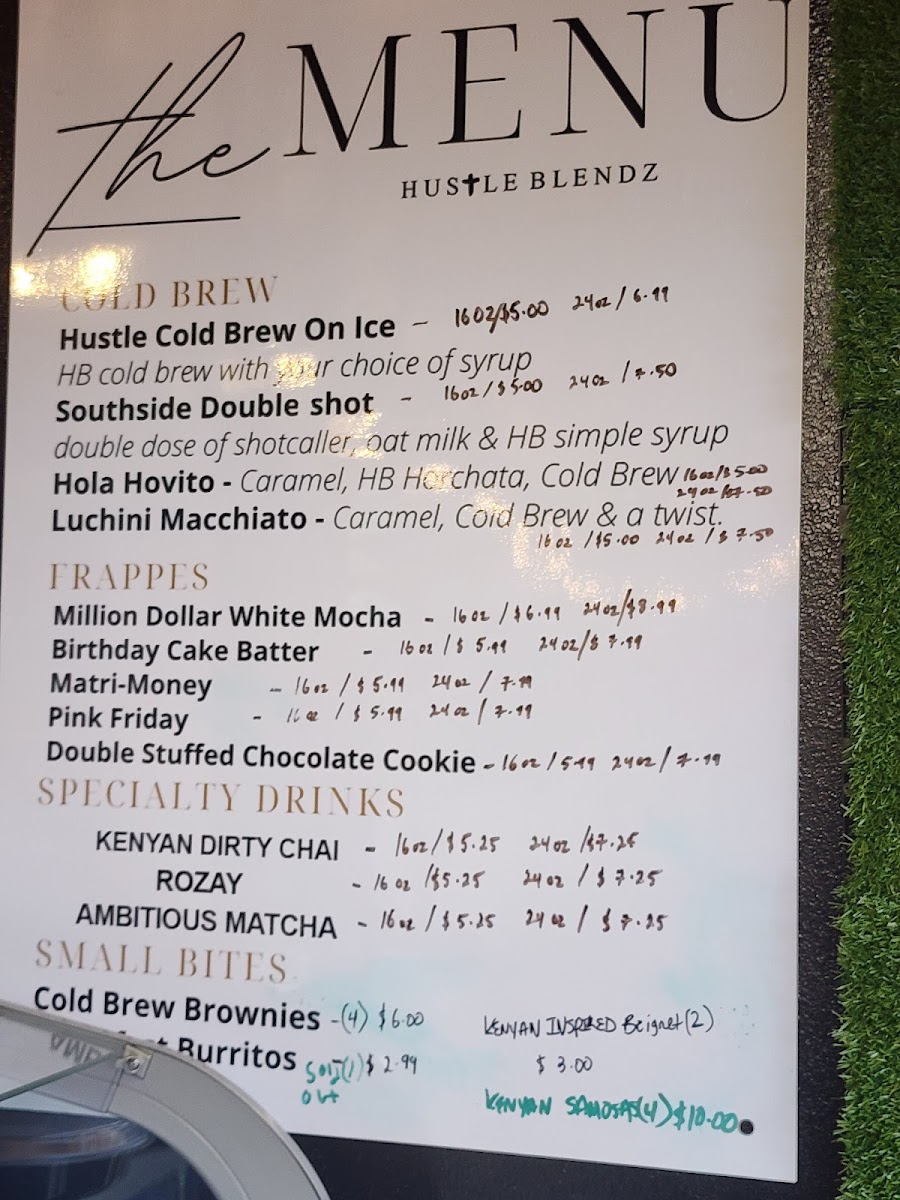 the MENU
HUSTLE BLENDZ
COLD BREW
Hustle Cold Brew On Ice - 16oz/$5.00 24oz/6.99
HB cold brew with your choice of syrup
Southside Double shot - 16oz/$5.00 24oz/7.50
double dose of shotcaller, oat milk & HB simple syrup
Hola Hovito - Caramel, HB Horchata, Cold Brew 16oz/$5.00
24oz/$7.50
Luchini Macchiato - Caramel, Cold Brew & a twist.
16oz/$5.00 24oz/$7.50
FRAPPES
Million Dollar White Mocha - 16oz/$6.99 24oz/$8.99
Birthday Cake Batter - 16oz/$5.99 24oz/$7.99
Matri-Money - 16oz/$5.99 24oz/7.99
Pink Friday - 16oz/$5.99 24oz/7.99
Double Stuffed Chocolate Cookie - 16oz/5.99 24oz/7.99
SPECIALTY DRINKS
KENYAN DIRTY CHAI - 16oz/$5.25 24oz/$7.25
ROZAY - 16oz/$5.25 24oz/$7.25
AMBITIOUS MATCHA - 16oz/$5.25 24oz/$7.25
SMALL BITES
Cold Brew Brownies -(4) $6.00
Burritos (1)$2.99
Sold
out
KENYAN INSPIRED Beignet(2)
$3.00
KENYAN SAMOSAS(4)$10.00